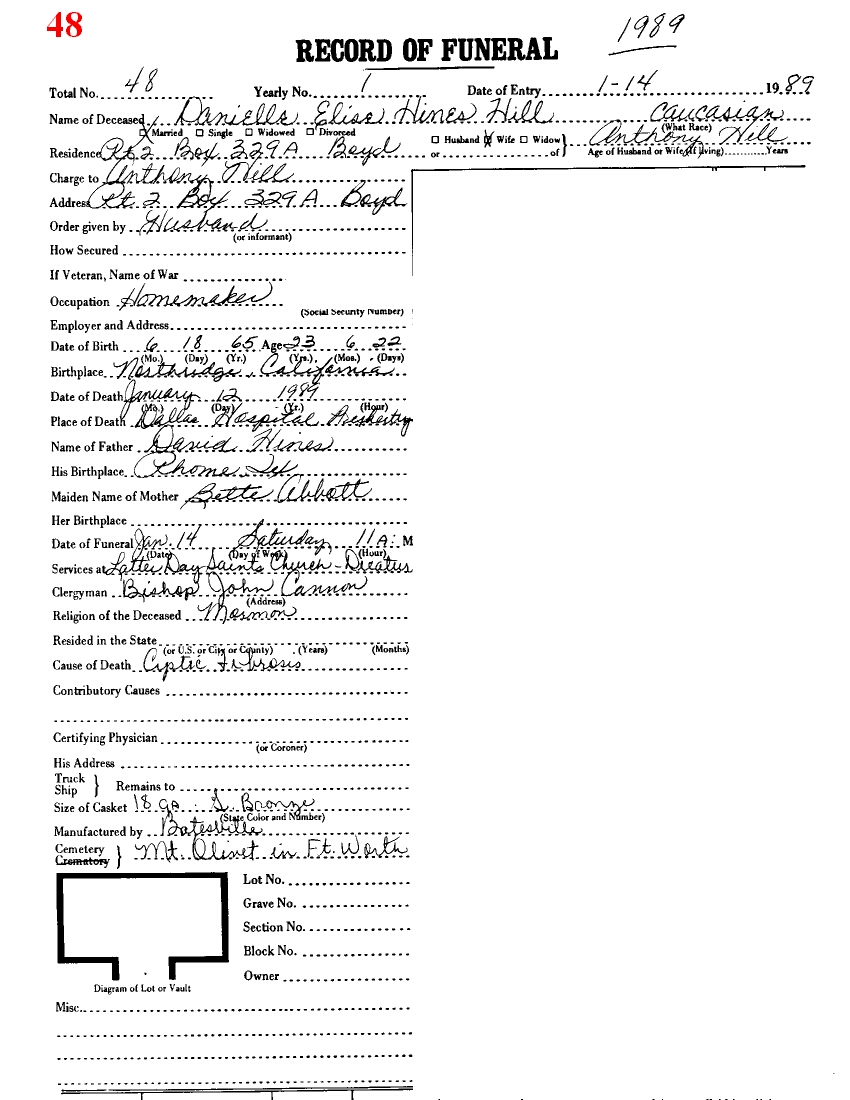 48
1989
RECORD OF FUNERAL
Total No. 48 Yearly No. 1 Date of Entry 1-14 1989
Name of Deceased Danielle Elise Hines Hill Caucasian
(What Race)
Married Single Widowed Divorced Husband Wife Widow } Anthony Hill
Residence Rt 2 Box 329A Boyd or of } Age of Husband or Wife (if living) Years
Charge to Anthony Hill
Address Rt. 2 Box 329A Boyd
Order given by Husband
(or informant)
How Secured
If Veteran, Name of War
Occupation Homemaker
(Social Security Number)
Employer and Address
Date of Birth 6 18 65 Age 23 6 22
(Mo.) (Day) (Yr.) (Yrs.) (Mos.) (Days)
Birthplace Northridge, California
Date of Death January 12 1989
(Mo.) (Day) (Yr.) (Hour)
Place of Death Dallas Hospital
Name of Father David Hines
His Birthplace Rhome Tex
Maiden Name of Mother Bette Abbott
Her Birthplace
Date of Funeral Jan. 14 Saturday 11 A. M
(Date) (Day of Week) (Hour)
Services at Latter Day Saints Church - Decatur
Clergyman Bishop John Cannon
(Address)
Religion of the Deceased Mormon
Resided in the State
(or U.S. or City or County) (Years) (Months)
Cause of Death Cyptic Fibrosis
Contributory Causes
Certifying Physician
(or Coroner)
His Address
Truck
Ship } Remains to
Size of Casket 18 ga. S. Bronze
(State Color and Number)
Manufactured by Batesville
Cemetery
Crematory } Mt. Olivet in Ft. Worth
Lot No.
Grave No.
Section No.
Block No.
Owner
Diagram of Lot or Vault
Misc.